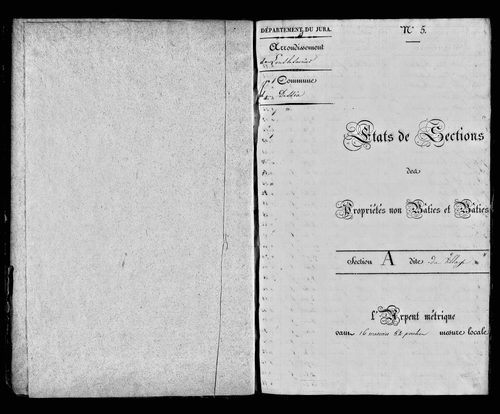 DÉPARTEMENT DU JURA.
Arrondissement
Commune
N° 5.
États de Sections
des
Propriétés non Bâties et Bâties
Section A dite du Village
l'Arpent métrique
vaut 16 mesures 82 perches mesure locale